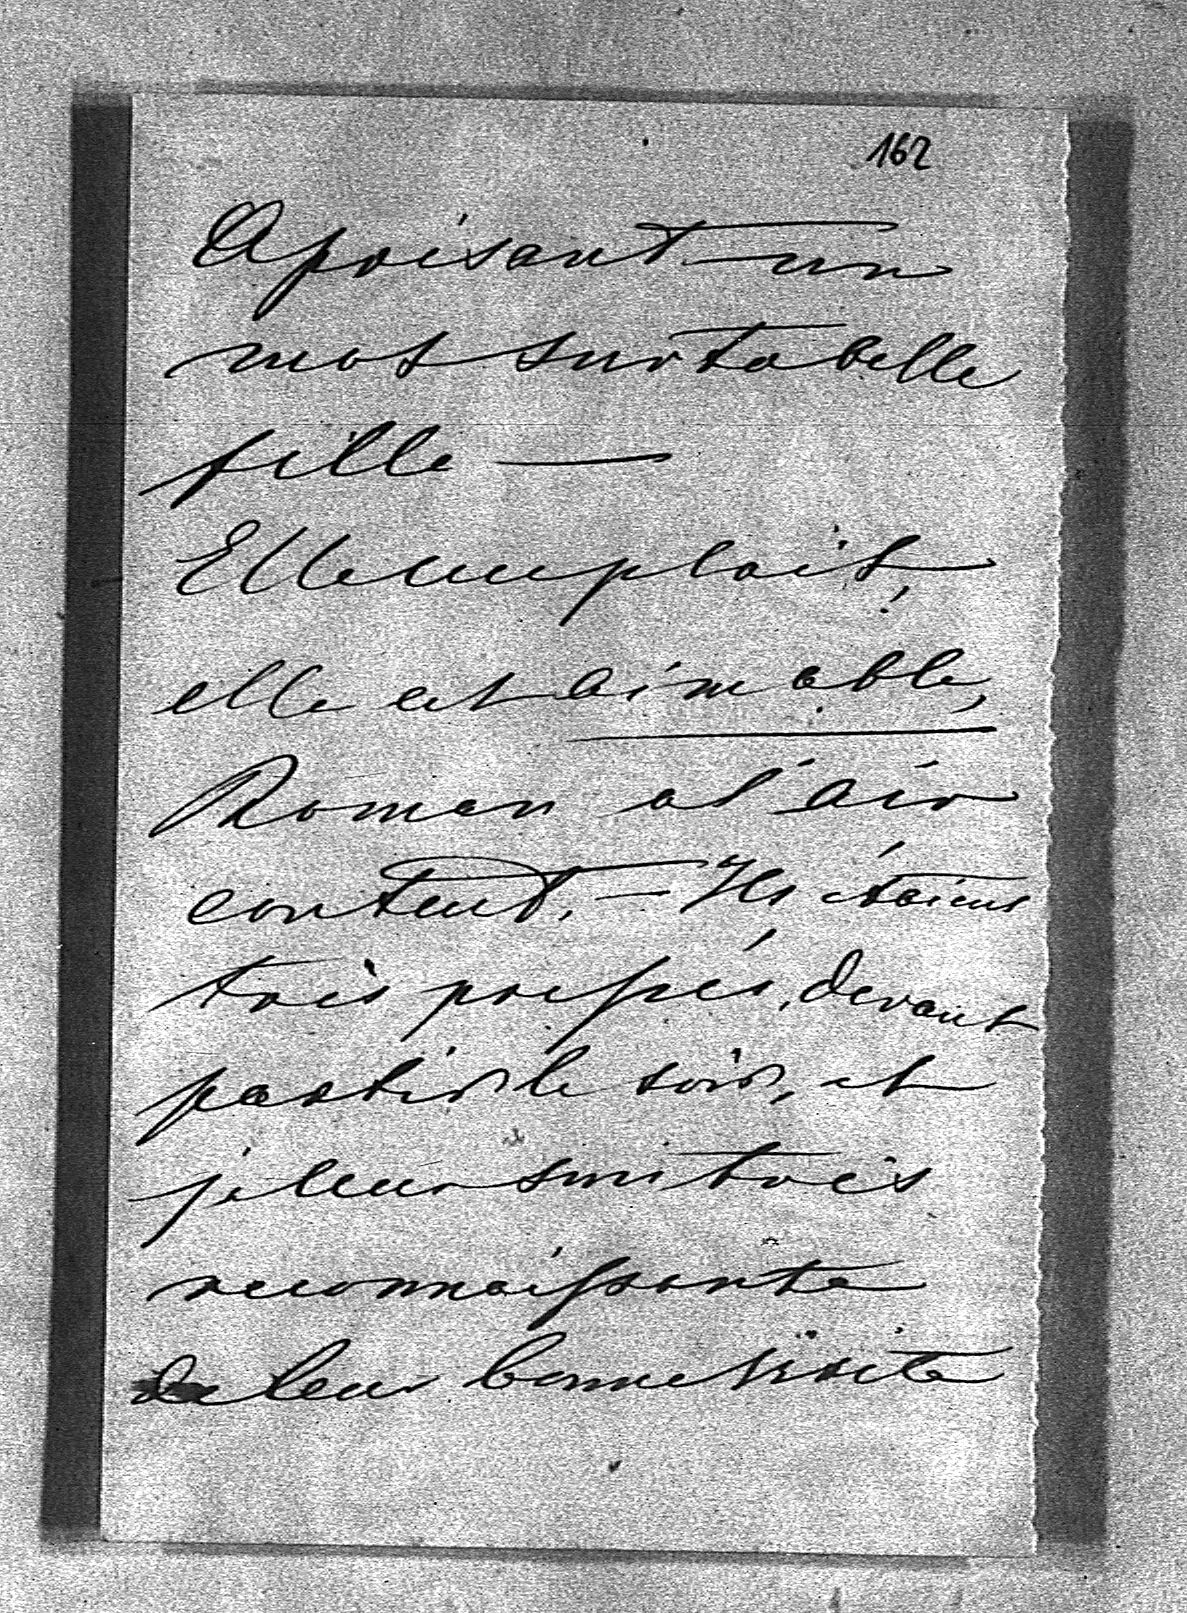 162
Aprèsant un
mot sur ta belle
fille —
Elle me plait,
elle est aimable,
Roman a l'air
content. — Ils étaient
très pressés, devant
partir le soir, et
je leur suis très
reconnaissante
de leur bonne visite